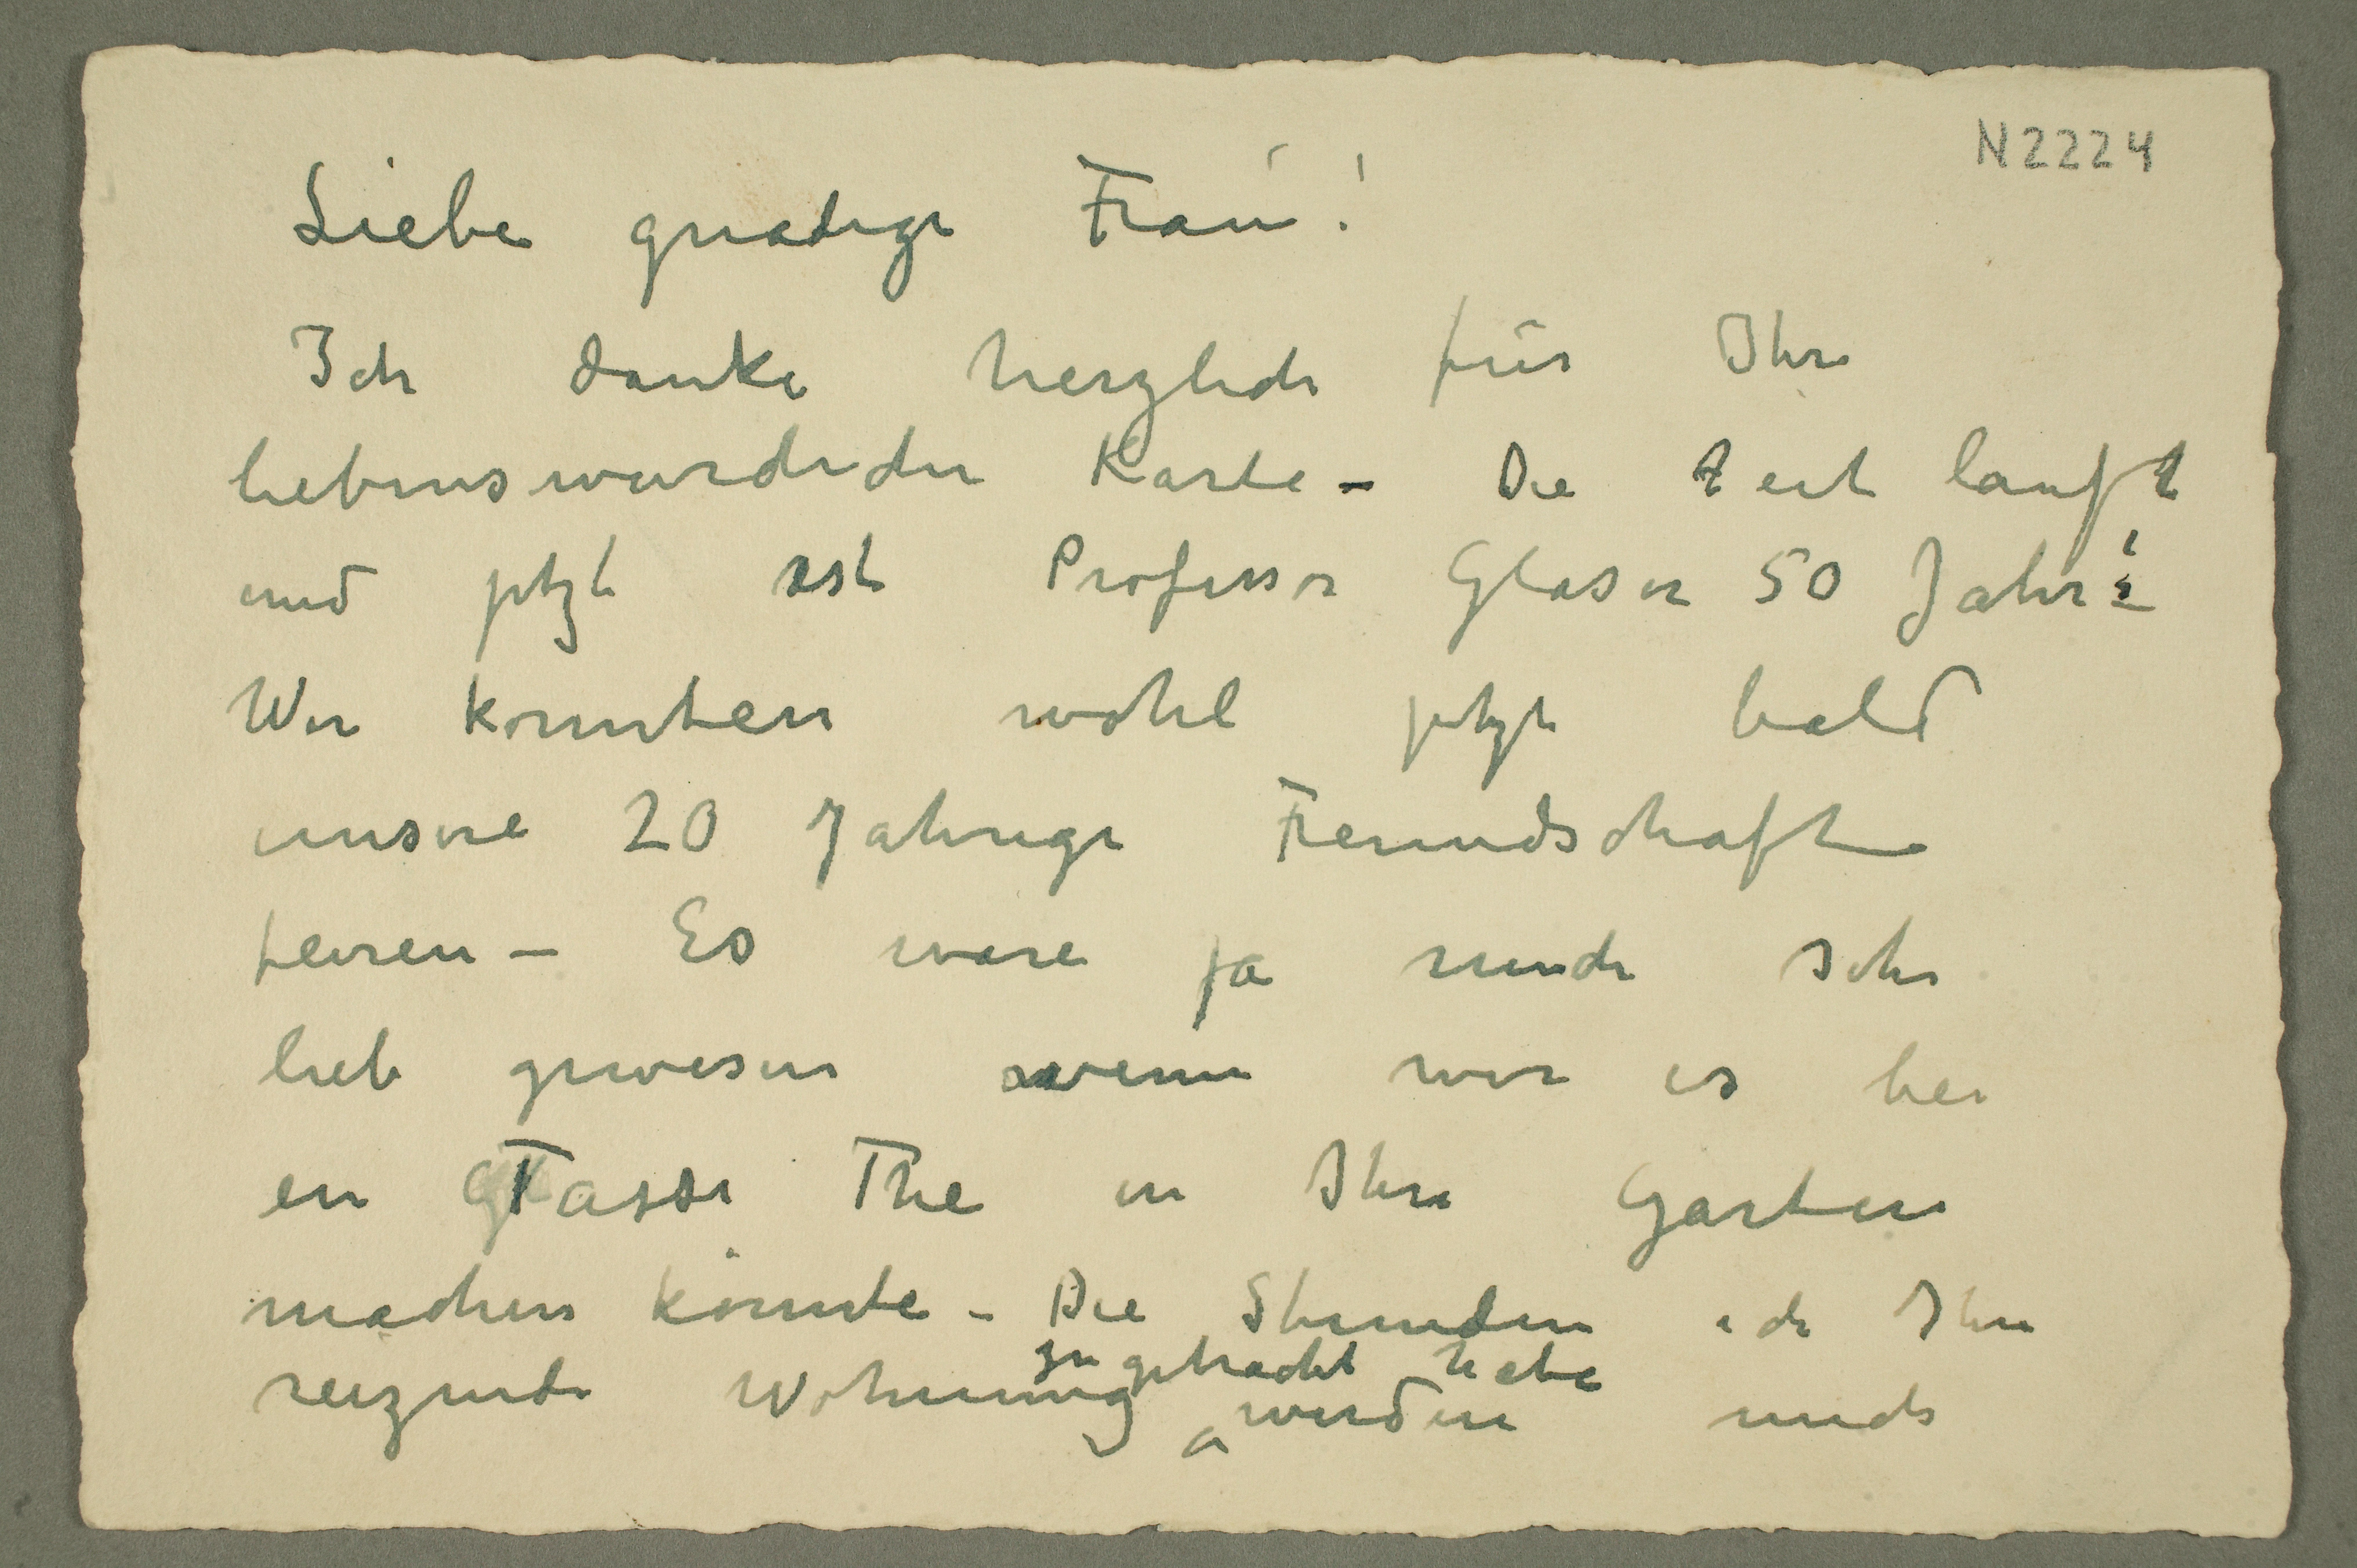 N 2224
Liebe gnadige Frau!
Ich danke herzlich für Ihre
liebenswurdiche Karte – Die Zeit lauft
und jetzt ist Professor Glaser 50 Jahre!
Wir konnten wohl jetzt bald
unsere 20 Jahrige Freundschaft
feiren – Es ware ja mich sehr
lieb gewesen wenn wir es bei
ein Tasse The in Ihre Garten
machen könnte – Die Stunden ich Ihre
zugebracht habe
reizende Wohnung werden mich